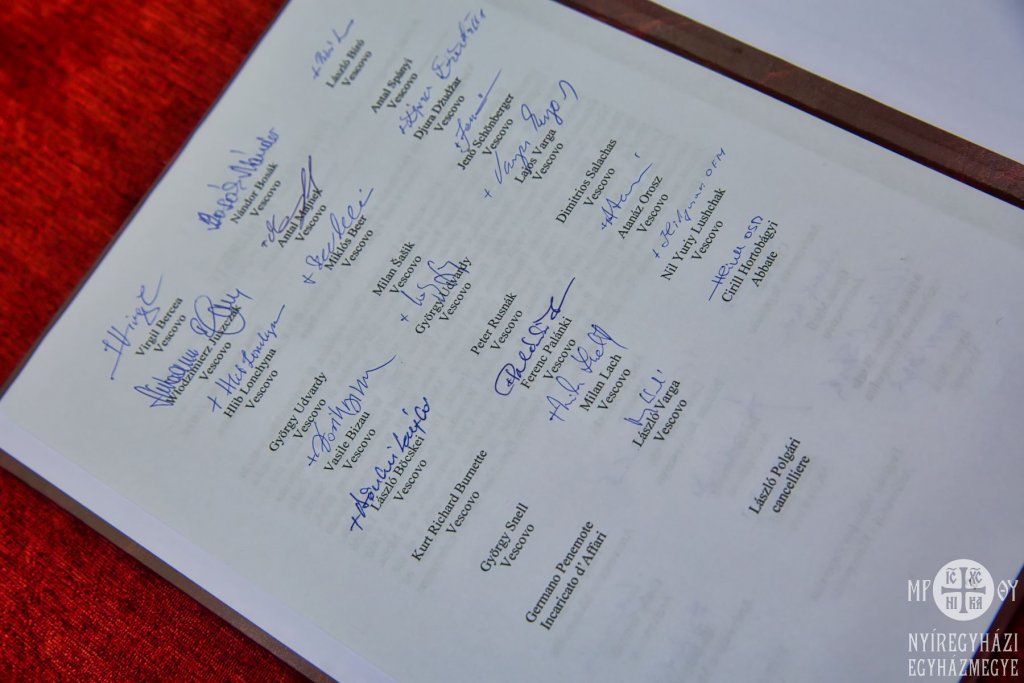 Virgil Bercea
Vescovo
Włodzimierz Juszczak
Vescovo
+ Hlib Lonchyna
Hlib Lonchyna
Vescovo
György Udvardy
Vescovo
Vasile Bizau
Vescovo
László Böcskei
Vescovo
Kurt Richard Burnette
Vescovo
György Snell
Vescovo
Germano Penemote
Incaricato d'Affari
Bosák Nándor
Nándor Bosák
Vescovo
Antal Majnek
Vescovo
Miklós Beer
Vescovo
Milan Šašik
Vescovo
György Udvardy
Vescovo
Peter Rusnák
Vescovo
Ferenc Palánki
Vescovo
Milan Lach
Vescovo
László Varga
Vescovo
László Bíró
Vescovo
Antal Spányi
Vescovo
Djura Džudžar
Vescovo
Jenő Schönberger
Vescovo
+ Varga Lajos
Lajos Varga
Vescovo
Dimitrios Salachas
Vescovo
Atanáz Orosz
Vescovo
OFM
Nil Yurty Lushchak
Vescovo
OSB
Cirill Hortobágyi
Abbate
László Polgári
cancelliere
ΜΡ ΘΥ
IC XC
NI KA
NYÍREGYHÁZI
EGYHÁZMEGYE